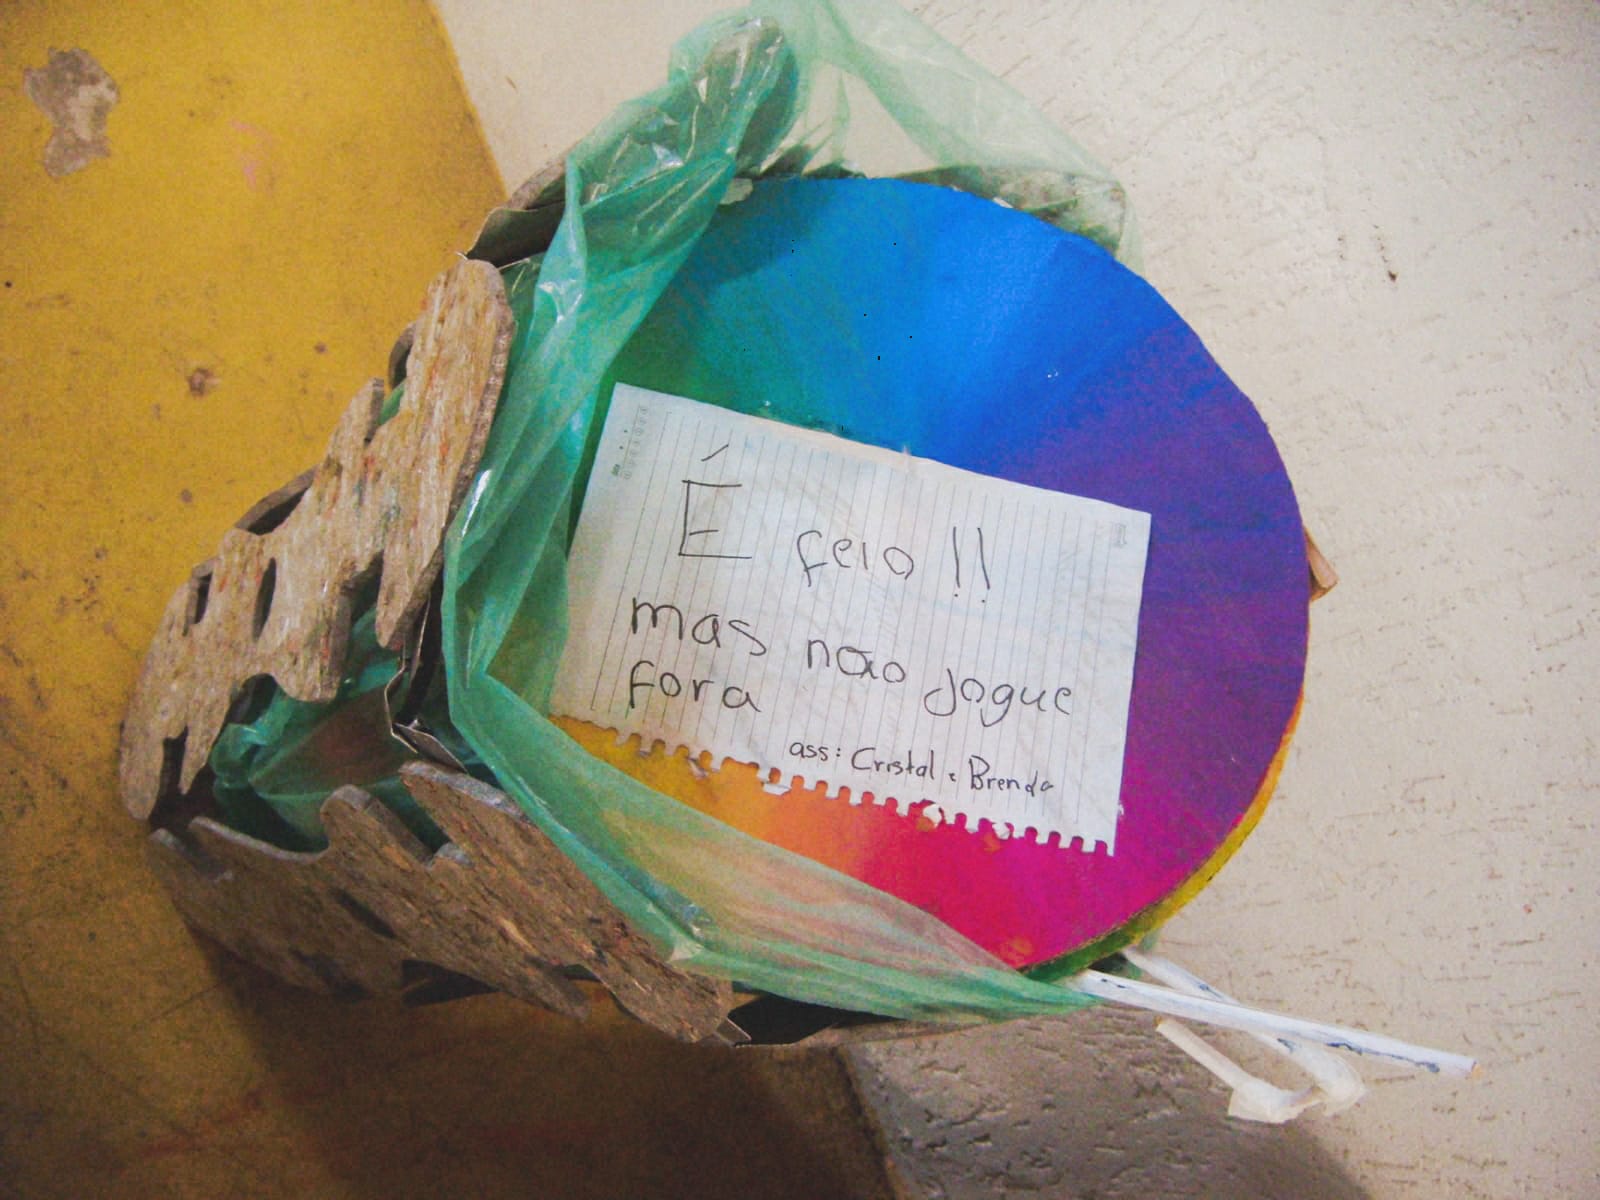 É feio !!
mas não jogue
fora
ass: Cristal e Brenda